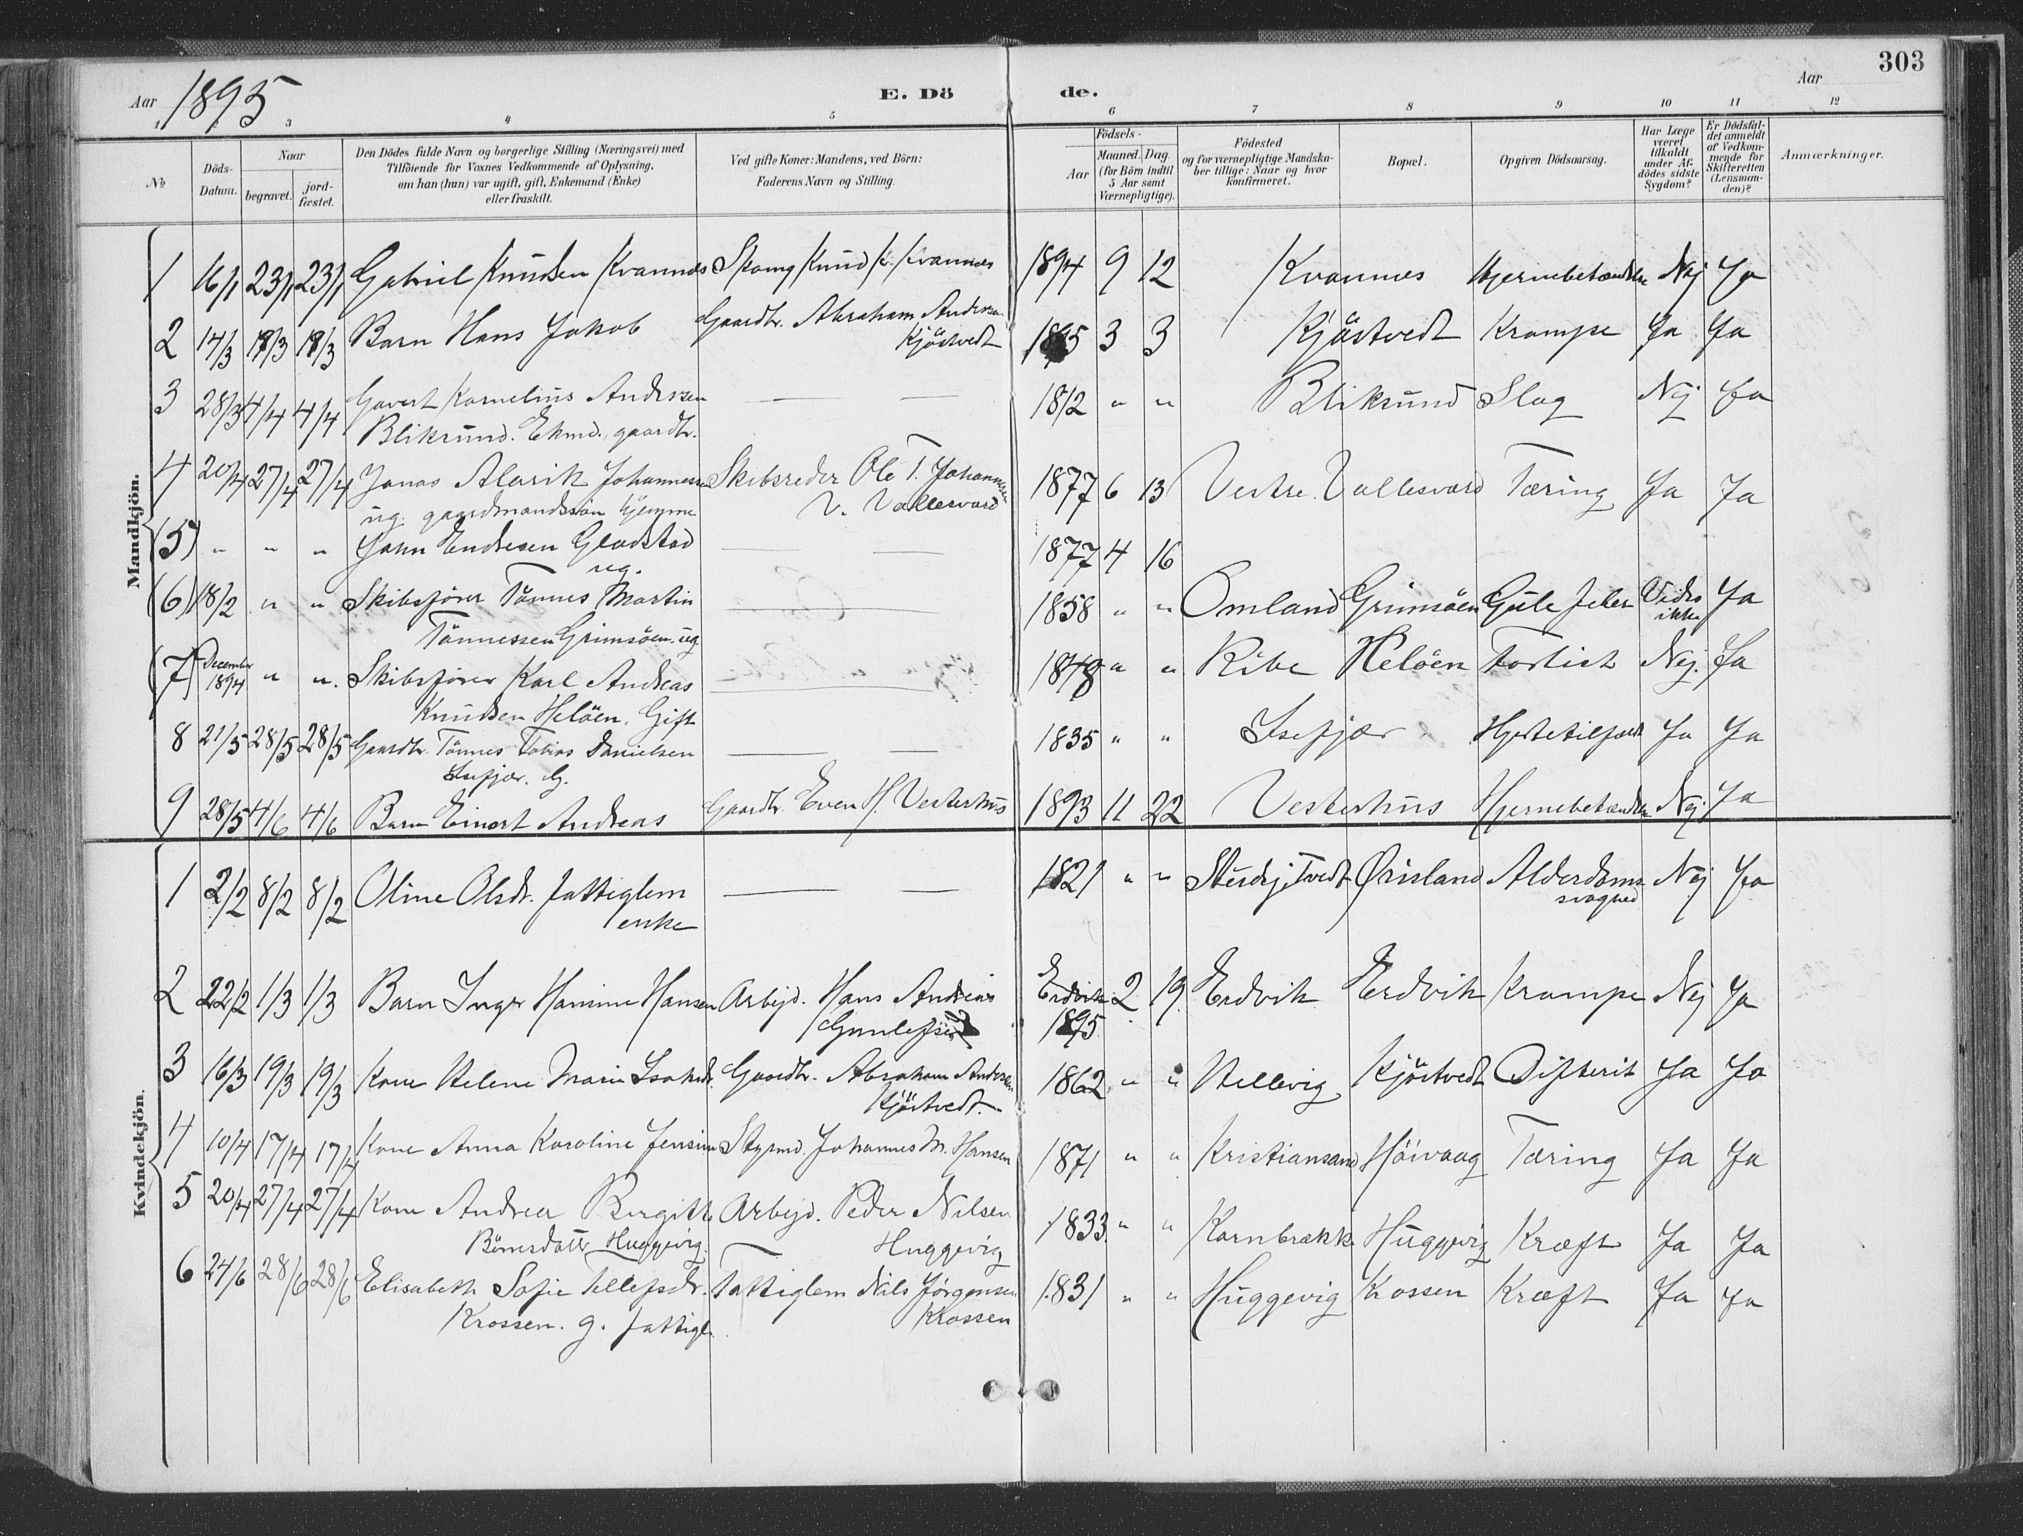 303
Aar 1895 E. Dö de. Aar
1 2 3 4 5 6 7 8 9 10 11 12
No. Döds-Datum. Naar begravet. jord-fæstet. Den Dödes fulde Navn og borgerlige Stilling (Næringsvei) med Tilföiende for Voxnes Vedkommende af Oplysning, om han (hun) var ugift, gift, Enkemand (Enke) eller fraskilt. Ved gifte Koner: Mandens, ved Börn: Faderens Navn og Stilling. Födsels- Aar Maaned. Dag (for Börn indtil 5 Aar samt Værnepligtige). Födested og for værnepligtige Mandskaber tillige: Naar og hvor konfirmeret. Bopæl. Opgiven Dödsaarsag. Har Læge været tilkaldt under Afdödes sidste Sygdom? Er Dödsfaldet anmeldt af Vedkommende for Skifteretten (Lensmanden)? Anmærkninger.
Mandkjön.
1 16/1 23/1 23/1 Gabriel Knudsen Kvannes Knud K. Kvannes 1894 9 12 Kvannes Nej Ja
2 17/3 18/3 18/3 Barn Hans Jakob Gaardbr. Abraham Andersen 1895 3 3 Kjöstvedt Krampe Ja Ja
Kjöstvedt
3 28/3 4/4 4/4 Govert Kornelius Andersen — — 1812 " " Bliksund Slag Nej Ja
Bliksund. Ekmd. gaardbr.
4 20/4 27/4 27/4 Jonas Alarik Johannessen Skibsreder Ole T. Johannessen 1877 6 13 Vestre Vallesværd Tæring Ja Ja
ug. gaardmandssön hjemme V. Vallesværd
(5) " " " John Endresen Gladstad — — 1877 4 16
ug.
(6) 18/2 " " Skibsförer Tönnes Martin — — 1858 " " Omland Grimsöen Gule feber Vides ikke Ja
Tönnessen Grimsöen. ug
(7) December 1894 " " Skibsförer Karl Andreas — — 1848 " " Ribe Helöen Forlist Nej. Ja
Knudsen Helöen. Gift
8 21/5 28/5 28/5 Gaardbr. Tönnes Tobias Danielsen — — 1835 " " Isefjær Ja Ja
Isefjær. G.
9 28/5 4/6 4/6 Barn Einert Andreas Gaardbr. Even H. Vesterhus 1893 11 22 Vesterhus Nej Ja
Kvindekjön.
1 2/2 8/2 8/2 Oline Olsdr. fattiglem — — 1821 " " Örisland Alderdoms Nej Ja
enke svaghed
2 22/2 1/3 1/3 Barn Inger Hansine Hansen Arbejd. Hans Andreas Erdvik 2 19 Erdvik Erdvik Krampe Nej Ja
Gunlefsen 1895
3 16/3 19/3 19/3 Kone Helene Marie Isaksdr. Gaardbr. Abraham Andersen 1862 " " Hellevig Kjöstvedt Difterit Ja Ja
Kjöstvedt.
4 10/4 17/4 17/4 Kone Anna Karoline Jensine Styrmd. Johannes M. Hansen 1871 " " Kristiansand Höivaag Tæring Ja Ja
5 20/4 27/4 27/4 Kone Andrea Birgitte Arbejd. Peder Nilsen 1833 " " Kornbrække Huggevig Kræft Ja Ja
Huggevig. Huggevig
6 24/6 28/6 28/6 Elisabeth Sofie Tellefsdr. Fattiglem Nils Jörgensen 1831 " " Huggevig Krossen Kræft Ja Ja
Krossen. g. fattigl. Krossen